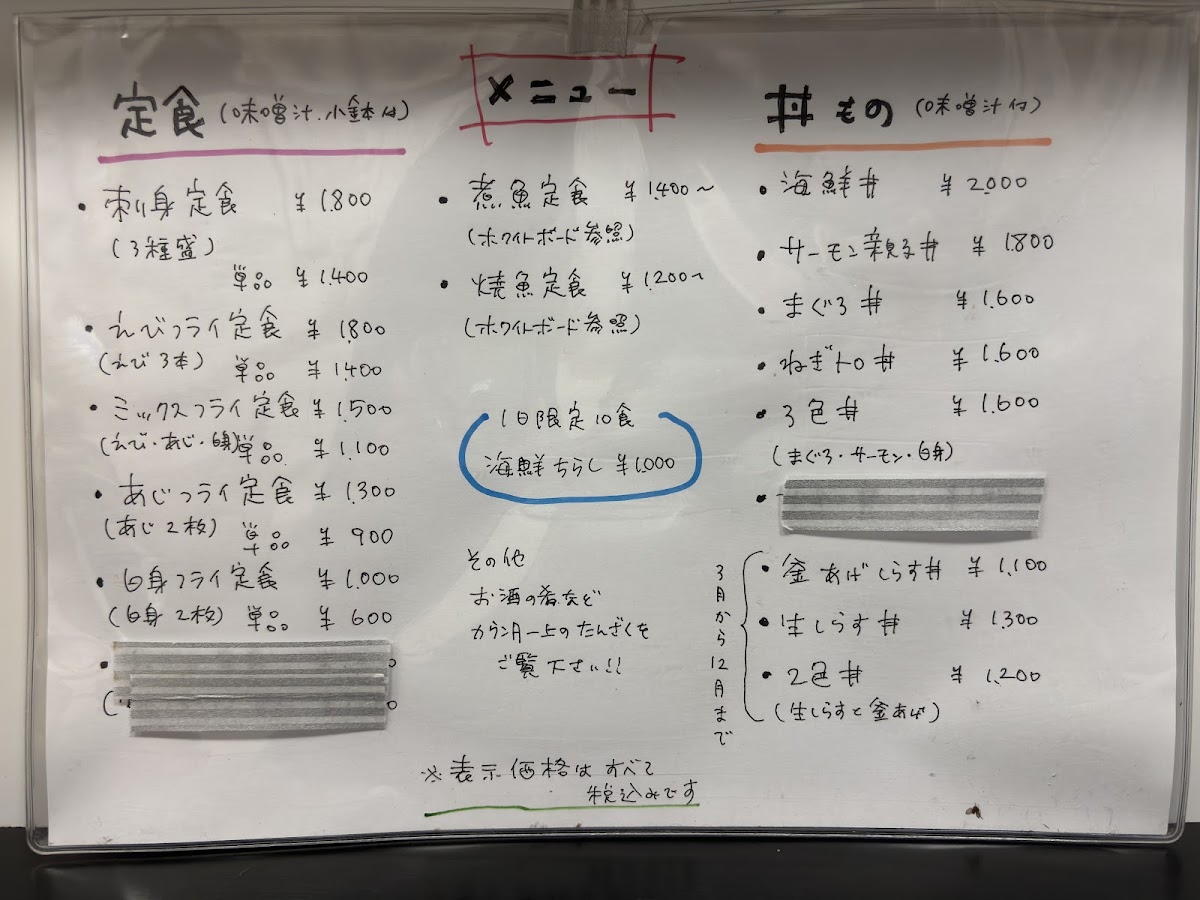 メニュー
定食(味噌汁.小鉢付)
・刺身定食 ¥1.800
(3種盛)
単品 ¥1.400
・えびフライ定食 ¥1.800
(えび3本) 単品 ¥1.400
・ミックスフライ定食 ¥1.500
(えび・あじ・白身)単品 ¥1.100
・あじフライ定食 ¥1.300
(あじ2枚) 単品 ¥900
・白身フライ定食 ¥1.000
(白身2枚) 単品 ¥600
・煮魚定食 ¥1.400〜
(ホワイトボード参照)
・焼魚定食 ¥1.200〜
(ホワイトボード参照)
1日限定10食
海鮮ちらし ¥1.000
その他
お酒の肴など
カウンター上のたんざくを
ご覧下さい!!
丼もの(味噌汁付)
・海鮮丼 ¥2.000
・サーモン親子丼 ¥1.800
・まぐろ丼 ¥1.600
・ねぎトロ丼 ¥1.600
・3色丼 ¥1.600
(まぐろ・サーモン・白身)
3月から12月まで
・釜あげしらす丼 ¥1.100
・生しらす丼 ¥1.300
・2色丼 ¥1.200
(生しらすと釜あげ)
※表示価格はすべて
税込みです